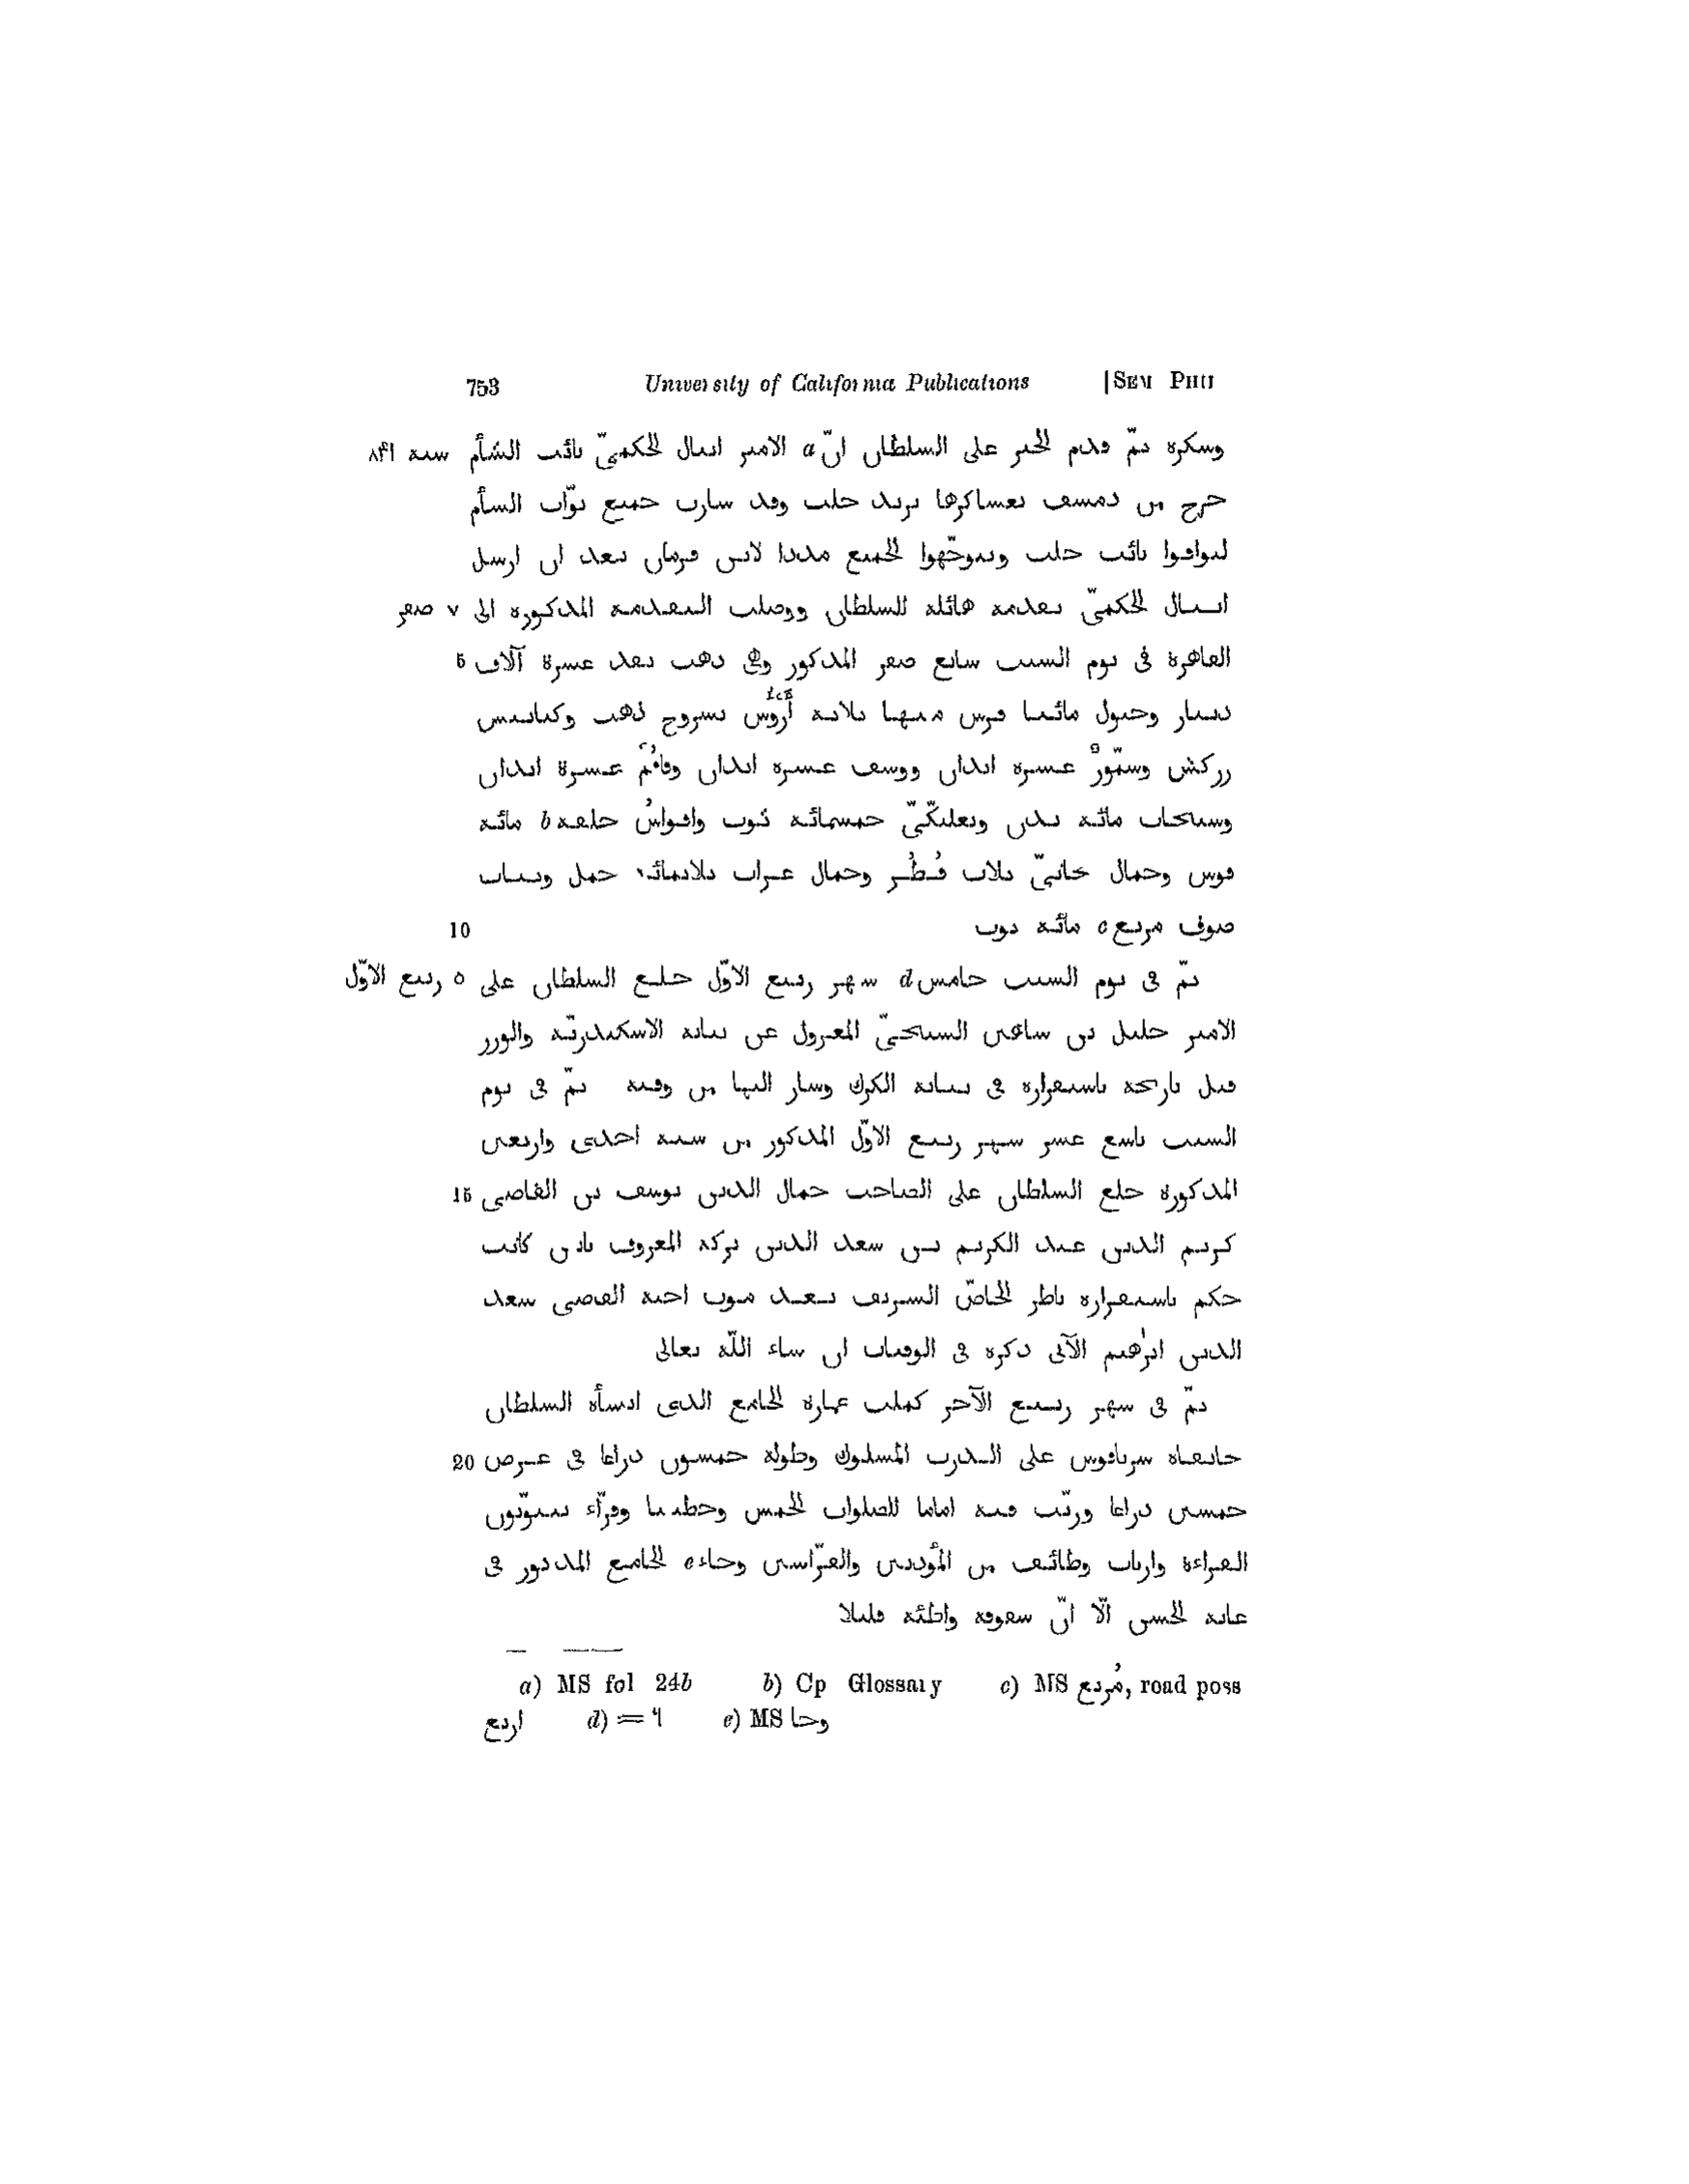 753 University of California Publications [SEM PHIL
وشكره ثمّ قدم الخبر على السلطان انّ a الامير اينال الجكميّ نائب الشأم سنة ٨۴١
خرج من دمشق بعساكرها يريد حلب وقد سارت جميع نوّاب الشأم
ليوافوا نائب حلب ويتوجّهوا الجميع مددا لابن قرمان بعد ان ارسل
اينال الجكميّ بتقدمة هائلة للسلطان ووصلت التقدمة المذكورة الى ٧ صفر
القاهرة فى يوم السبت سابع صفر المذكور وهى ذهب نقد عشرة آلاف 5
دينار وخيول مائتا فرس منها ثلاثة أرؤس بسروج ذهب وكنابيش
زركش وسمّورٌ عشرة ابدان ووشق عشرة ابدان وقاقُم عشرة ابدان
وسنجاب مائة بدن وبعلبكّىّ خمسمائة ثوب واقواسُ حلقة b مائة
قوس وجمال بخاتىّ ثلاث قُطُر وجمال عراب ثلاثمائة جمل وثياب
صوف مربع c مائة ثوب 10
ثمّ فى يوم السبت خامس d شهر ربيع الاوّل خلع السلطان على ٥ ربيع الاوّل
الامير خليل بن شاهين الشيخىّ المعزول عن نيابة الاسكندريّة والوزر
قبل تاريخه باستقراره فى نيابة الكرك وسار اليها من وقته ثمّ فى يوم
السبت تاسع عشر شهر ربيع الاوّل المذكور من سنة احدى واربعين
المذكورة خلع السلطان على الصاحب جمال الدين يوسف بن القاضى 15
كريم الدين عبد الكريم بن سعد الدين بركة المعروف بابن كاتب
جكم باستقراره ناظر الخاصّ الشريف بعد موت اخيه القاضى سعد
الدين ابرٰهيم الآتى ذكره فى الوفيات ان شاء اللّه تعالى
ثمّ فى شهر ربيع الآخر كملت عمارة الجامع الذى انشأه السلطان
خانقاه سرياقوس على الدرب المسلوك وطوله خمسون ذراعا فى عرض 20
خمسين ذراعا ورتّب فيه اماما للصلوات الخمس وخطيبا وقرّاء يتنوّبون
القراءة وارباب وظائف من المؤذنين والفرّاشين وجاء e الجامع المذكور فى
غاية الحسن الّا انّ سقوفه واطئة قليلا
a) MS fol 24b b) Cp Glossary c) MS مُربع, read poss
اربع d) = ٦ e) MS وجا